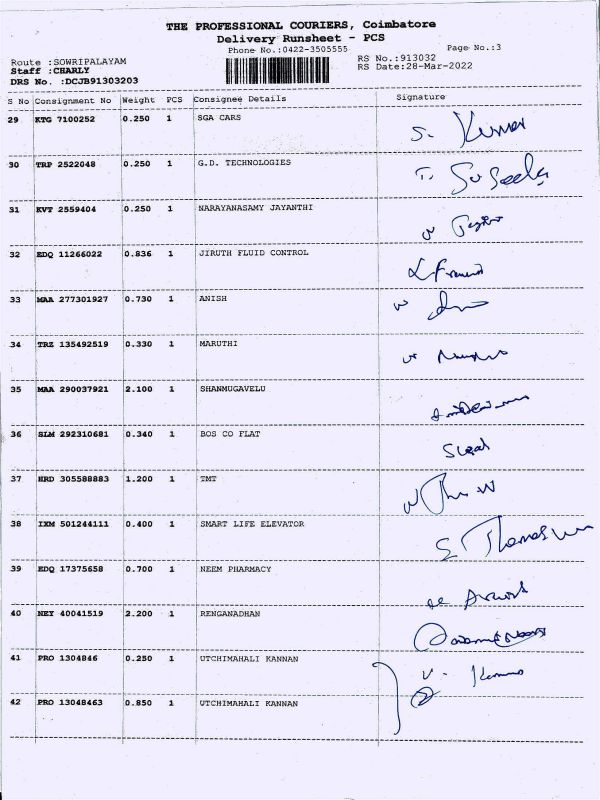 THE PROFESSIONAL COURIERS, Coimbatore
Delivery Runsheet - PCS
Phone No.:0422-3505555 Page No.:3
Route :SOWRIPALAYAM RS No.:913032
Staff :CHARLY RS Date:28-Mar-2022
DRS No. :DCJB91303203
S No Consignment No Weight PCS Consignee Details Signature
29 KTG 7100252 0.250 1 SGA CARS S. Kumar
30 TRP 2522048 0.250 1 G.D. TECHNOLOGIES
31 KVT 2559404 0.250 1 NARAYANASAMY JAYANTHI
32 EDQ 11266022 0.836 1 JIRUTH FLUID CONTROL
33 MAA 277301927 0.730 1 ANISH
34 TRZ 135492519 0.330 1 MARUTHI
35 MAA 290037921 2.100 1 SHANMUGAVELU
36 SLM 292310681 0.340 1 BOS CO FLAT
37 HRD 305588883 1.200 1 TMT
38 IXM 501244111 0.400 1 SMART LIFE ELEVATOR
39 EDQ 17375658 0.700 1 NEEM PHARMACY
40 NEY 40041519 2.200 1 RENGANADHAN
41 PRO 1304846 0.250 1 UTCHIMAHALI KANNAN
42 PRO 13048463 0.850 1 UTCHIMAHALI KANNAN